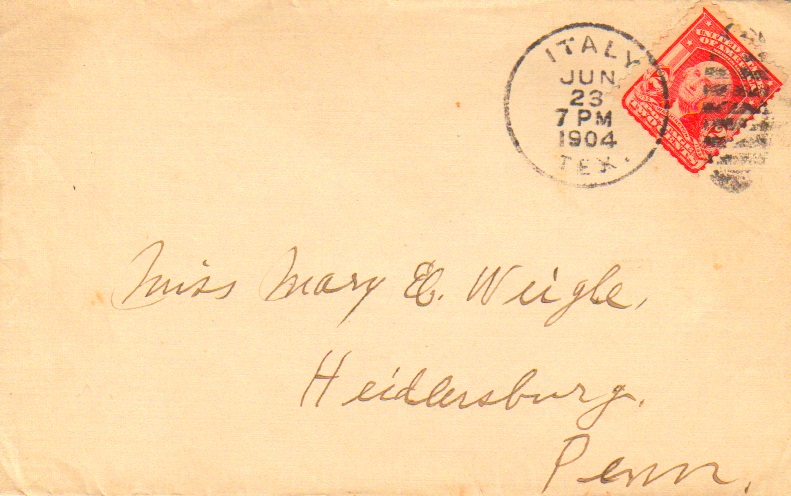 ITALY
JUN
23
7 PM
1904
TEX.
UNITED STATES
OF AMERICA
TWO CENTS
Miss Mary E. Weigle,
Heidlersburg,
Penn.